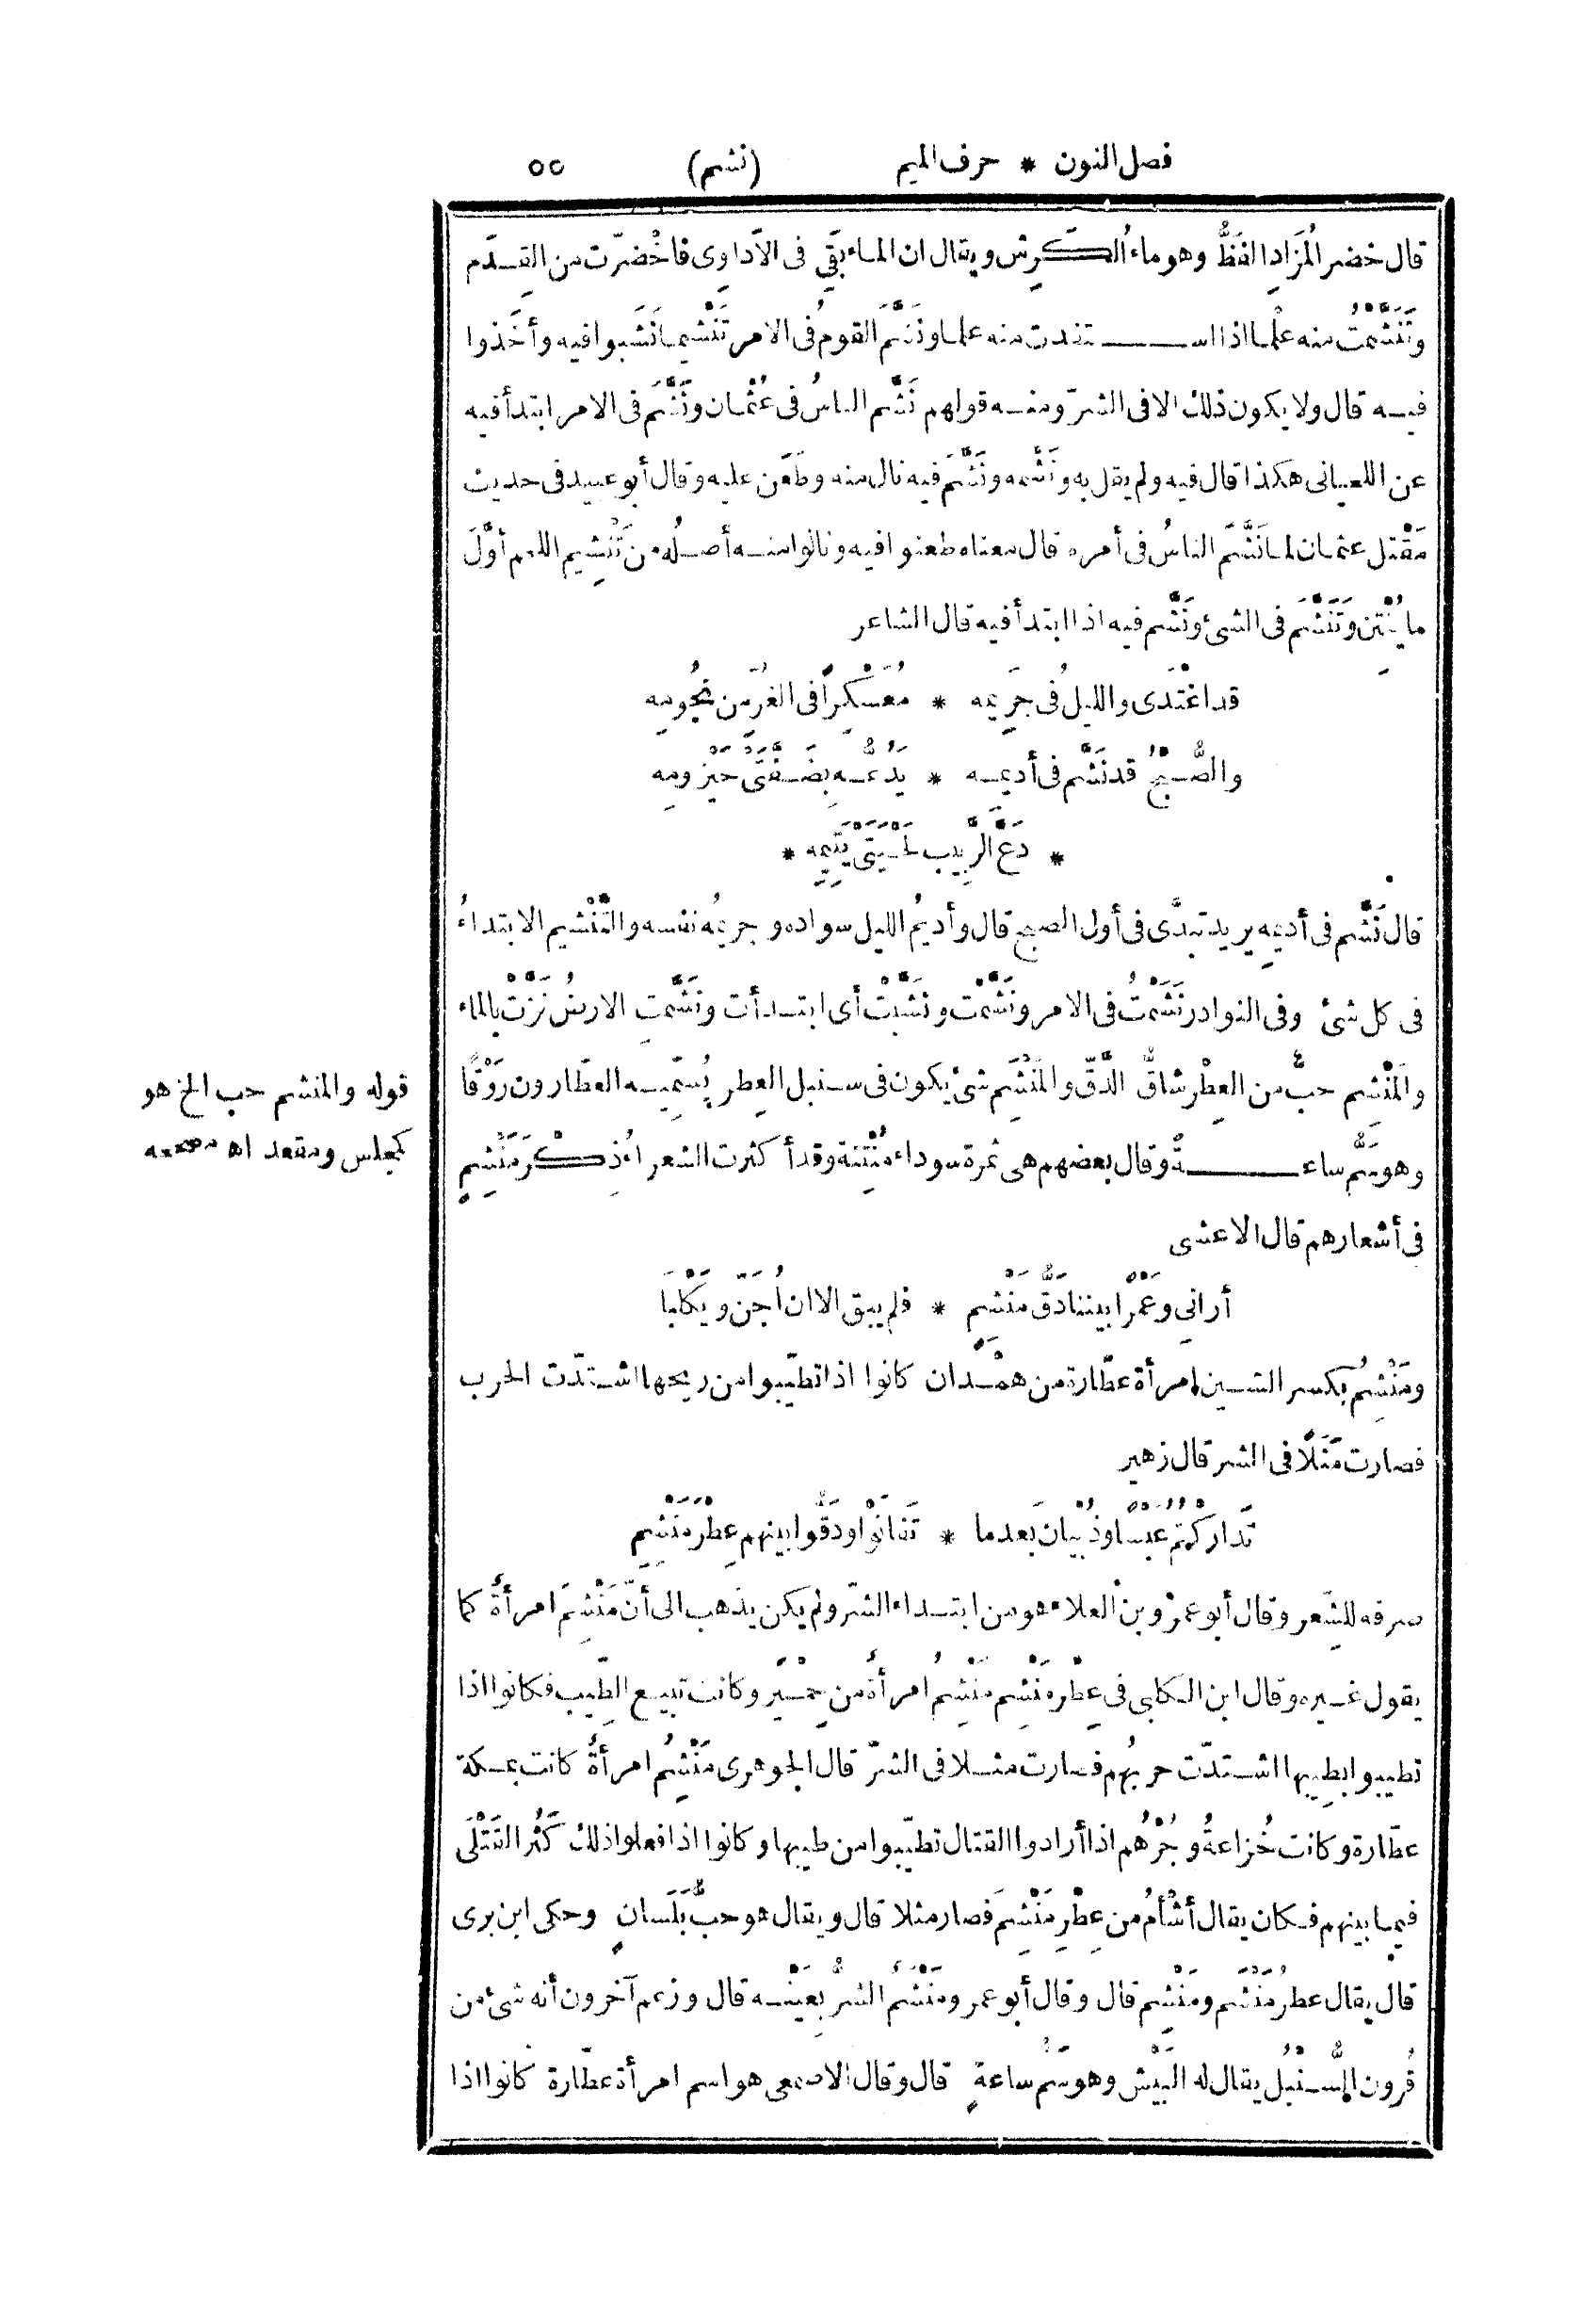 فصل النون * حرف الميم (نشم) ٥٥
قال خضر المُزَادِ الفَظُّ وهو ماءُ الكَرِش ويقال ان الماء بَقِي فى الاَداوِى فاخْضرّت من القِدَم
وتَنَشَّمْتُ منه عِلْما اذا استفدت منه علما ونَشَّمَ القومُ فى الامر تَنْشِيما نَشَبوا فيه وأَخَذوا
فيه قال ولا يكون ذلك الا فى الشرّ ومنه قولهم نَشَّم الناسُ فى عُثْمان ونَشَّمَ فى الامر ابتدأ فيه
عن اللحيانى هكذا قال فيه ولم يقل به ونَشَّمه ونَشَّمَ فيه نال منه وطَعَن عليه وقال أبو عبيد فى حديث
مَقْتل عثمان لما نَشَّمَ الناسُ فى أمره قال معناه طعنوا فيه ونالوا منه أصلُه من تَنْشِيم اللحم أوّلَ
ما يُنْتِن وتَنَشَّمَ فى الشئ ونَشَّم فيه اذا ابتدأ فيه قال الشاعر
قد اغْتَدى والليلُ فى جَرِيمه * مُعَسْكِراً فى الغُرِّ من نُجُومِه
والصُّبْحُ قد نَشَّم فى أَديمه * يَدُعُّه بِضَفَّتَىْ حَيْزومِه
* دَعَّ الرَّبِيبِ لَحْيَتَىْ يَتِيمِه *
قال نَشَّم فى أديمِه يريد تبدَّى فى أول الصبح قال وأديمُ الليل سواده وجريمُه نفسه والتَّنْشيم الابتداءُ
فى كل شئ وفى النوادر نَشَمْتُ فى الامر ونَشَّمْت ونَشَّبْتُ أى ابتدأت ونَشَّمَتِ الارضُ نَزَّتْ بالماء
والمَنْشِم حبٌّ من العِطْر شاقُّ الدَّقّ والمَنْشِمُ شئ يكون فى سنبل العِطر يُسمِّيه العطّارون رَوْقًا
وهو سَمُّ ساعةٍ وقال بعضهم هى ثمرة سوداء مُنْتِنة وقد أكثرت الشعراءُ ذِكْرَ مَنْشِمٍ
فى أشعارهم قال الاعشى
أرانِى وعَمْرًا بيننا دَقُّ مَنْشِمٍ * فلم يبق الا ان أُجَنّ ويَكْلَبَا
ومَنْشِمُ بكسر الشين امرأة عطّارة من همْدان كانوا اذا تطيّبوا من ريحها اشتدّت الحرب
فصارت مَثَلًا فى الشر قال زهير
تَدارَكْتُمُ عَبْسًا وذُبْيانَ بَعدما * تَفانَوْا ودَقُّوا بينهم عِطْرَ مَنْشِمِ
صرفه للشِّعر وقال أبو عمْرو بنْ العلاء هو من ابتداء الشرّ ولم يكن يذهب الى أنّ مَنْشِمَ امرأةٌ كما
يقول غيره وقال ابن الكلبى فى عِطْرِ مَنْشِمٍ مَنْشِمُ امرأةٌ من حِمْيَر وكانت تبيع الطِّيب فكانوا اذا
تطيبوا بطِيبها اشتدّت حربُهم فصارت مثلا فى الشرّ قال الجوهرى مَنْشِمُ امرأةٌ كانت بمكة
عطّارة وكانت خُزاعةُ وجُرْهُم اذا أرادوا القتال تطيّبوا من طيبها وكانوا اذا فعلوا ذلك كَثُر القَتْلَى
فيما بينهم فكان يقال أَشْأَمُ من عِطْرِ مَنْشِمَ فصار مثلا قال ويقال هو حبُّ بَلَسانٍ وحكى ابن برى
قال يقال عطرُ مَنْشَم ومَنْشِم قال وقال أبو عمرو مَنْشَمُ الشرُّ بعَيْنِه قال وزعم آخرون أنه شئ من
قُرون السُّنْبُل يقال له البَيْش وهو سَمُّ ساعةٍ قال وقال الاصمعى هو اسم امرأة عطّارة كانوا اذا
قوله والمنشم حب الخ هو
كمجلس ومقعد اه مصححه